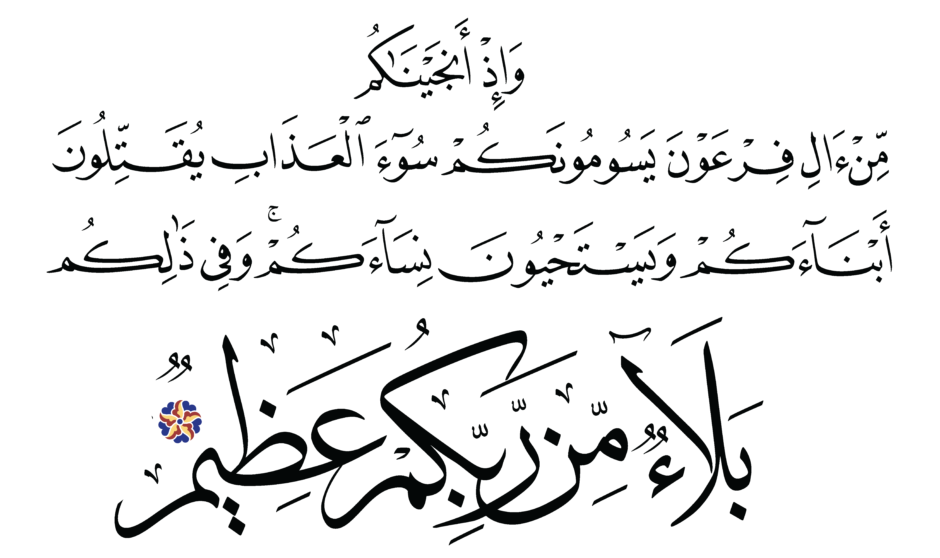 وَإِذْ أَنجَيْنَٰكُم
مِّنْ ءَالِ فِرْعَوْنَ يَسُومُونَكُمْ سُوٓءَ ٱلْعَذَابِ يُقَتِّلُونَ
أَبْنَآءَكُمْ وَيَسْتَحْيُونَ نِسَآءَكُمْ ۚ وَفِى ذَٰلِكُم
بَلَآءٌ مِّن رَّبِّكُمْ عَظِيمٌ